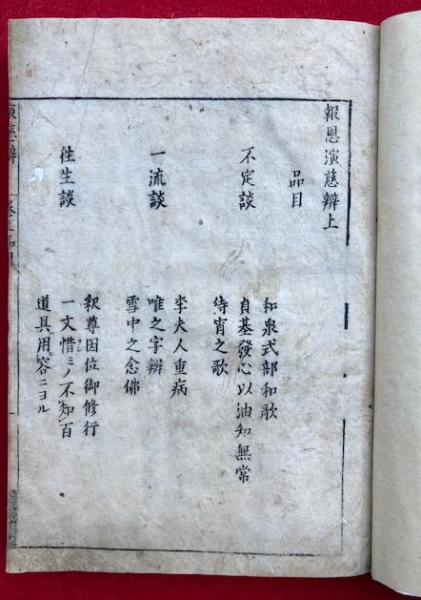 報恩演慈辨上
品目
不定談
和泉式部和歌
貞基發心以油知無常
待宵之歌
一流談
李夫人重病
唯之字辨
雪中之念佛
往生談
釈尊因位御修行
一文惜ミノ不知百
道具用容ニヨル